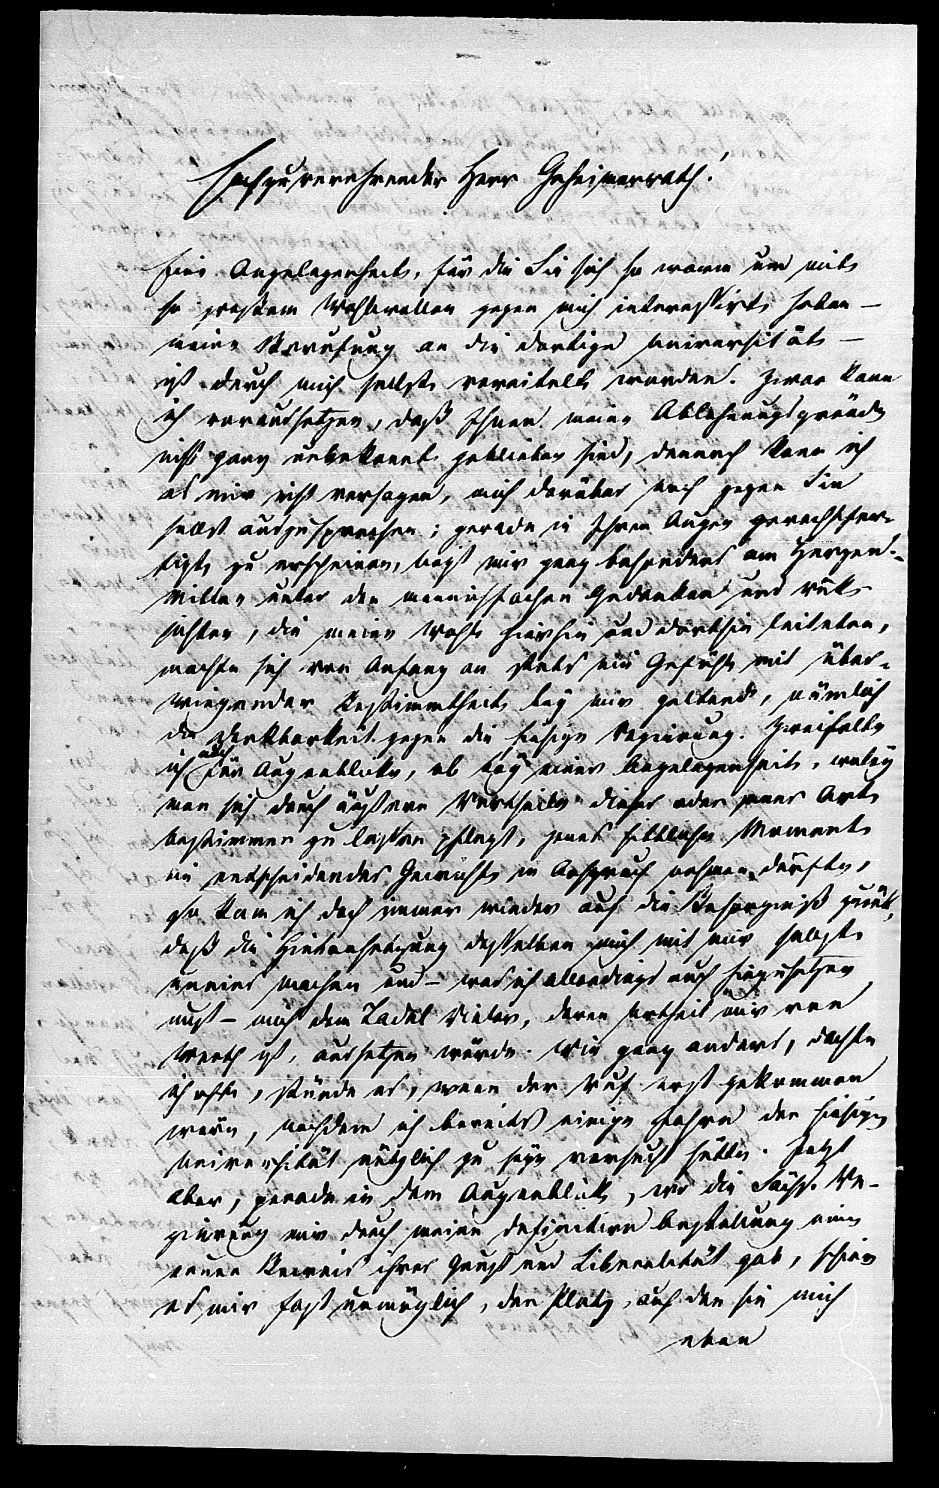 Hochzuverehrender Herr Geheimerrath!
Eine Angelegenheit, für die Sie sich so warm und mit
so großem Wohlwollen gegen mich interessirt haben –
meine Berufung an die dortige Universität –
ist durch mich selbst vereitelt worden. Zwar kann
ich voraussetzen, daß Ihnen meine Ablehnungsgründe
nicht ganz unbekannt geblieben sind, dennoch kann ich
es mir nicht versagen, mich darüber noch gegen Sie
selbst auszusprechen; gerade in Ihren Augen gerechtfer-
tigt zu erscheinen, liegt mir ganz besonders am Herzen. –
Mitten unter den mannichfachen Gedanken und Rük-
sichten, die meine Wahl hierhin und dorthin leiteten,
machte sich von Anfang an stets ein Gefühl mit über-
wiegender Bestimmtheit bey mir geltend, nämlich
die Dankbarkeit gegen die hiesige Regierung. Zweifelte
ich auch für Augenblicke, ob bey einer Angelegenheit, welche
man sich durch äußere Vortheile dieser oder jener Art
bestimmen zu lassen pflegt, jenes sittliche Moment
ein entscheidendes Gewicht in Anspruch nehmen dürfte,
so kam ich doch immer wieder auf die Besorgniß zurük,
daß die Hintansetzung desselben mich mit mir selbst
uneins machen und – was ich allerdings auch hinzusetzen
muß – mich dem Tadel Vieler, deren Urtheil mir von
Werth ist, aussetzen würde. Wie ganz anders, dachte
ich oft, stünde es, wenn der Ruf erst gekommen
wäre, nachdem ich bereits einige Jahre der hiesigen
Universität nützlich zu seyn versucht hätte. Jetzt
aber, gerade in dem Augenblick, wo die Sächs. Re-
gierung mir durch meine definitive Bestallung einen
neuen Beweis ihrer Gunst und Liberalität gab, schien
es mir fast unmöglich, den Platz, auf den sie mich
eben